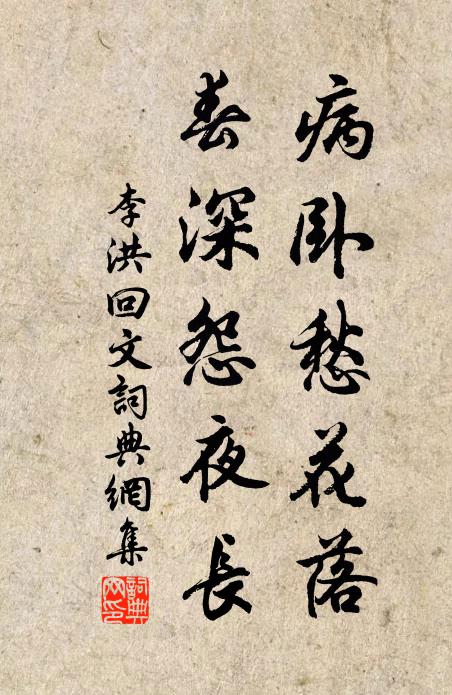 病卧愁花落
春深怨夜長
李洪回文詞典網集
詞典
网印